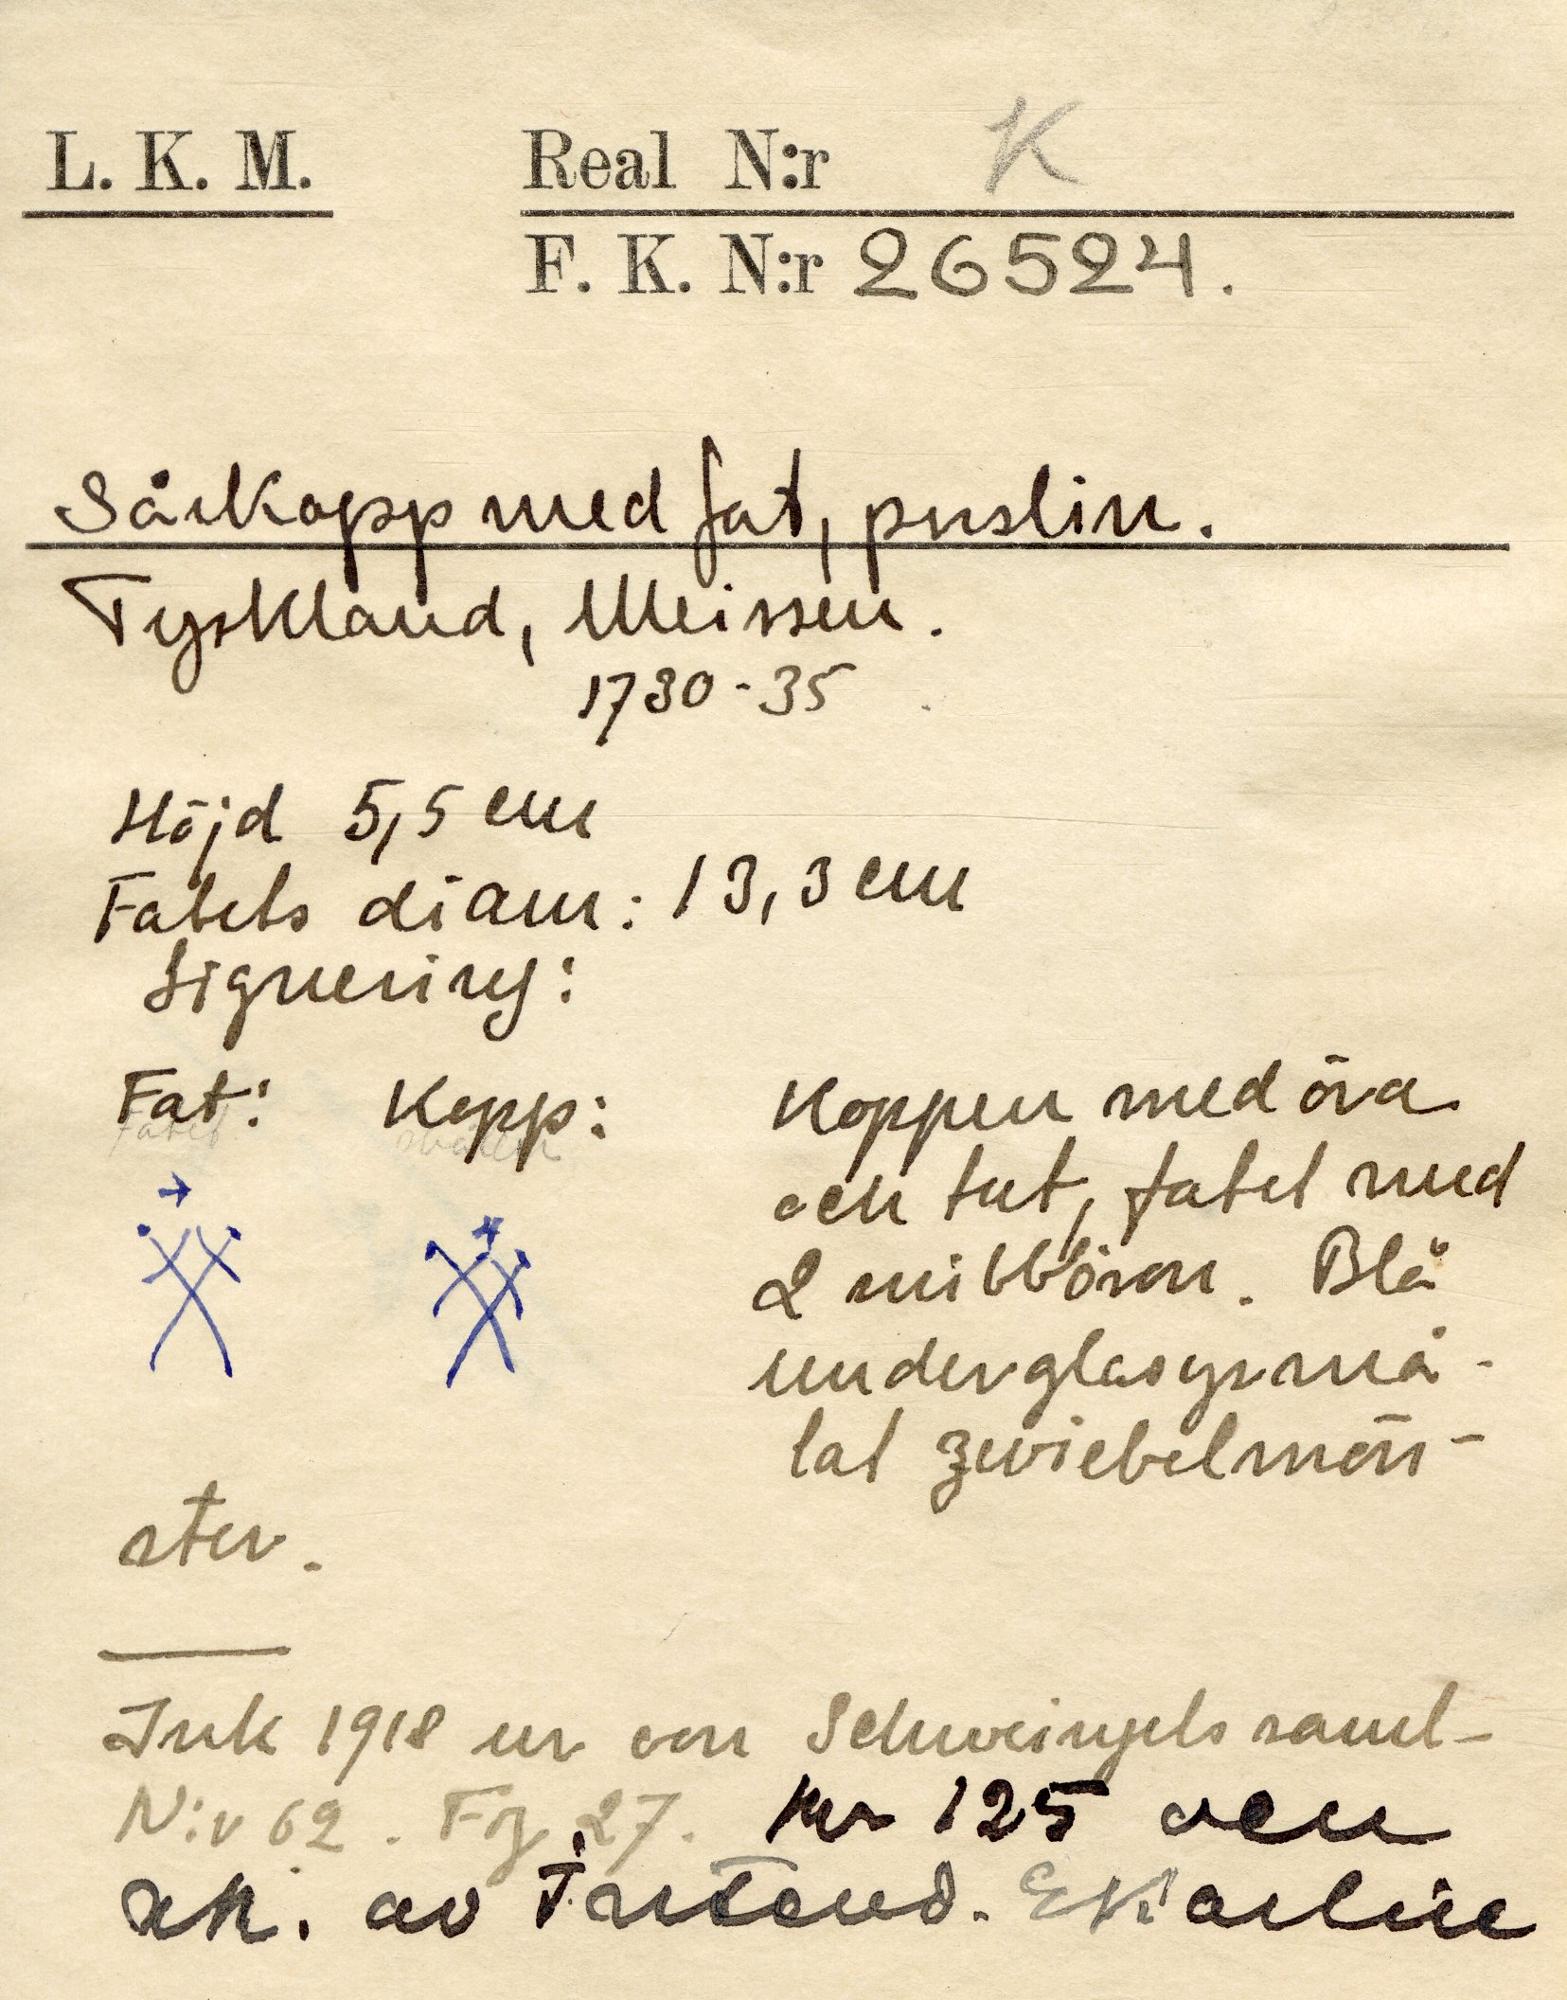 L. K. M. Real N:r K
F. K. N:r 26524.
Såskopp med fat, puslin.
Tyskland, Meissen.
1730-35
Höjd 5,5 cm
Fatets diam: 13,3 cm
Signering:
Fat: Kopp:
fatet
Koppen med öra
och tut, fatet med
2
Blå
underglasyrmå-
lat zwiebelmön-
ster.
Ink 1918 ur von Schweingels saml-
N:r 62. Fg. 27. kr 125 och
sk. av